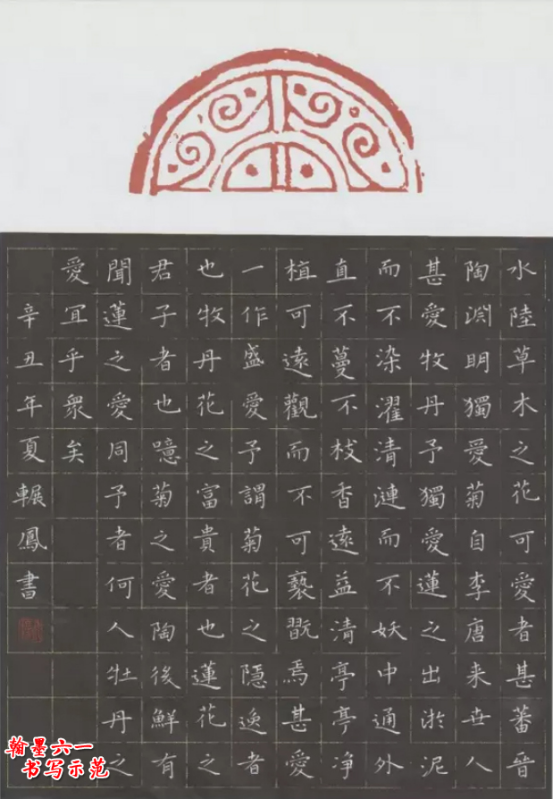 水陸草木之花可愛者甚蕃晉
陶渕明獨愛菊自李唐来世人
甚愛牧丹予獨愛蓮之出淤泥
而不染濯清漣而不妖中通外
直不蔓不枝香遠益清亭亭净
植可遠觀而不可褻翫焉甚愛
一作盛愛予謂菊花之隱逸者
也牧丹花之富貴者也蓮花之
君子者也噫菊之愛陶後鮮有
聞蓮之愛同予者何人牡丹之
愛宜乎衆矣
辛丑年夏輾鳳書
翰墨六一
书写示范